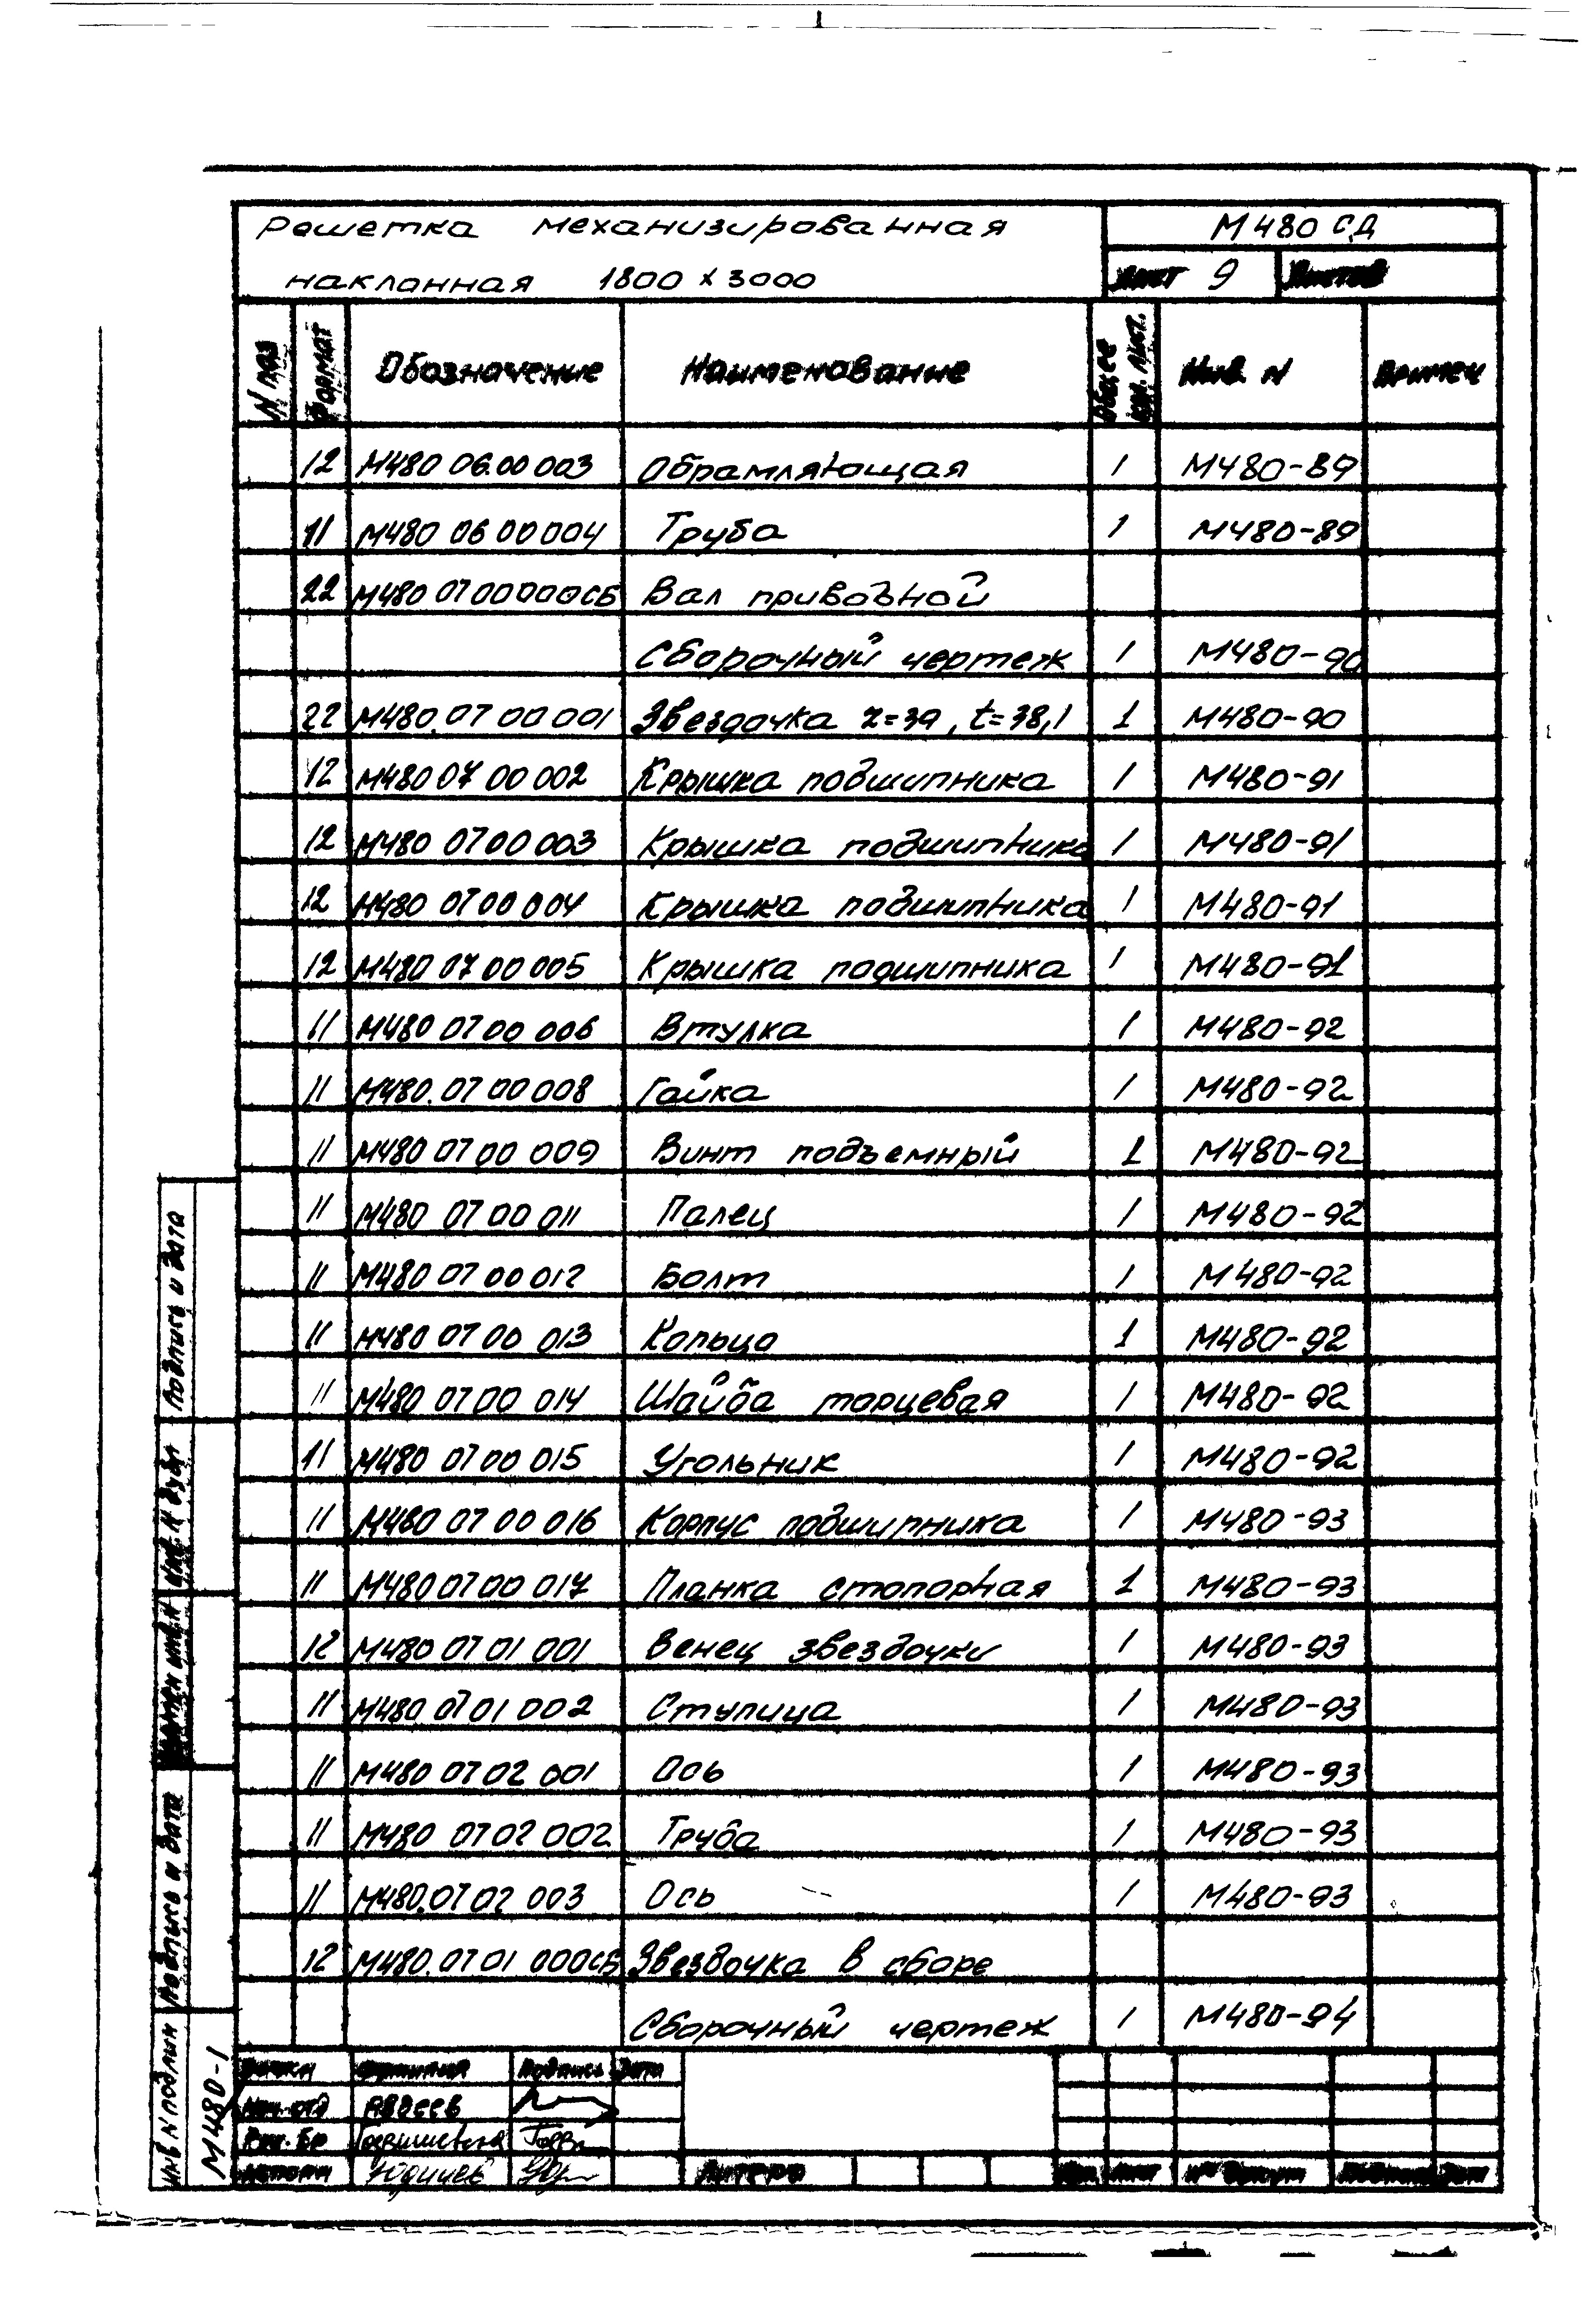 Решетка механизированная М480 СД
наклонная 1800 х 3000 Лист 9 Листов
N поз Формат Обозначение Наименование Общее кол. лист. Инв. N Примеч
12 М480 06.00 003 Обрамляющая 1 М480-89
11 М480 06 00 004 Труба 1 М480-89
22 М480 07 00 000СБ Вал приводной
Сборочный чертеж 1 М480-90
22 М480.07 00 001 Звездочка z=39, t=38,1 1 М480-90
12 М480 07 00 002 Крышка подшипника 1 М480-91
12 М480 07 00 003 Крышка подшипника 1 М480-91
12 М480 07 00 004 Крышка подшипника 1 М480-91
12 М480 07 00 005 Крышка подшипника 1 М480-91
11 М480 07 00 006 Втулка 1 М480-92
11 М480.07 00 008 Гайка 1 М480-92
11 М480 07 00 009 Винт подъемный 1 М480-92
11 М480 07 00 011 Палец 1 М480-92
11 М480 07 00 012 Болт 1 М480-92
11 М480 07 00 013 Кольцо 1 М480-92
11 М480 07 00 014 Шайба торцевая 1 М480-92
11 М480 07 00 015 Угольник 1 М480-92
11 М480 07 00 016 Корпус подшипника 1 М480-93
11 М480 07 00 017 Планка стопорная 1 М480-93
12 М480 07 01 001 Венец звездочки 1 М480-93
11 М480 07 01 002 Ступица 1 М480-93
11 М480 07 02 001 Ось 1 М480-93
11 М480 07 02 002 Труба 1 М480-93
11 М480.07 02 003 Ось 1 М480-93
12 М480.07 01 000СБ Звездочка в сборе
Сборочный чертеж 1 М480-94
Фамилия Подпись Дата
Нач. отд Авдеев
Рук. бр
Юдичев Литера Лист N° докум Подпись Дат
Подпись и дата
Инв. N дубл
Взамен инв. N
Подпись и дата
Инв N подлин
М480-1